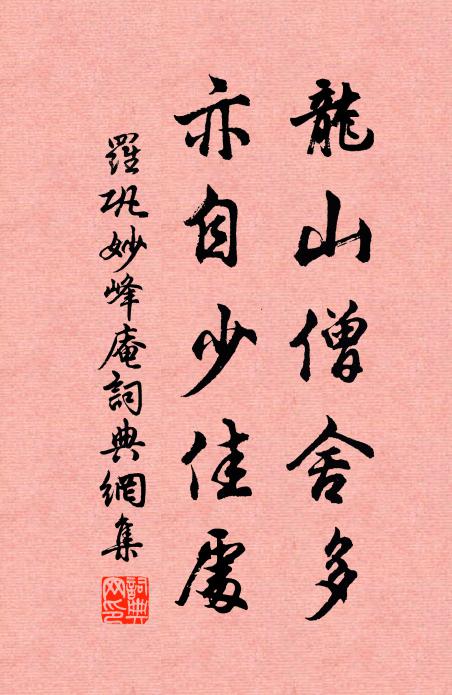 龍山僧舍多
亦自少佳處
羅巩妙峰庵詞典網集
詞典網印